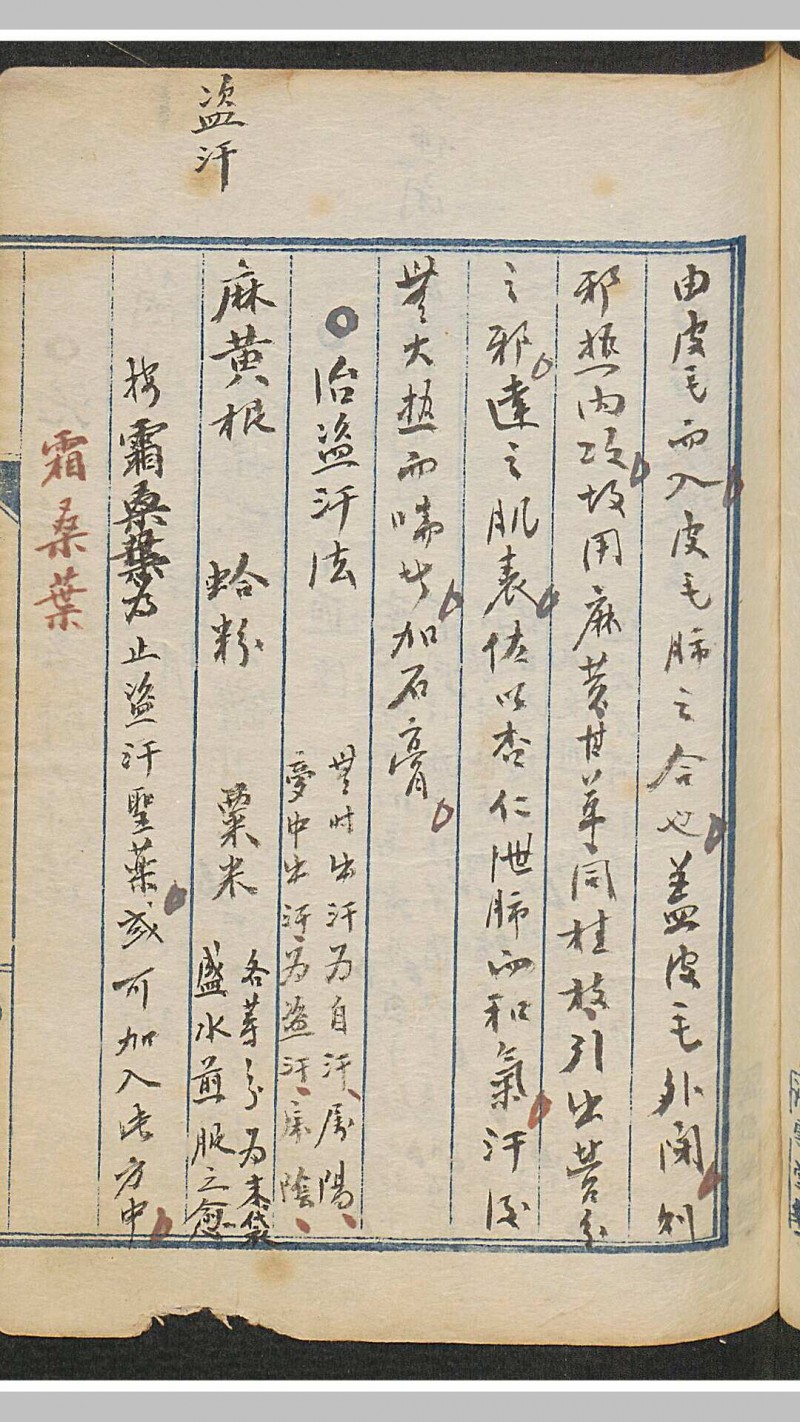 盜汗
由皮毛而入皮毛肺之合也蓋皮毛外閉則
邪熱內攻故用麻黃甘草同桂枝引出營分
之邪達之肌表佐以杏仁泄肺而和氣汗後
無大熱而喘者加石膏
治盜汗法
無時出汗為自汗屬陽
夢中出汗為盜汗屬陰
麻黃根 蛤粉 粟米
各等分為末袋
盛水煎服立愈
按霜桑葉為止盜汗聖藥或可加入此方中
霜桑葉